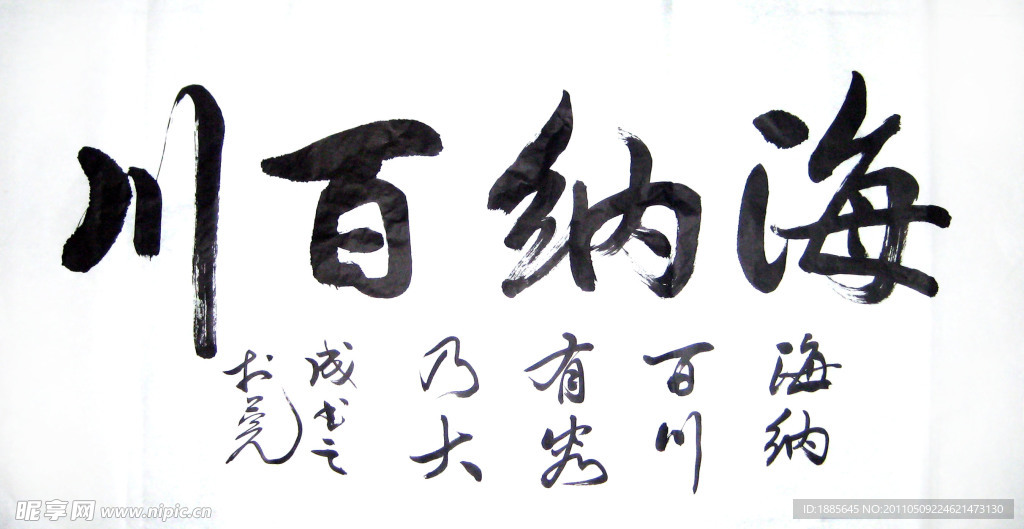 海纳百川
海纳
百川
有容
乃大
成书之
于莞
昵享网 www.nipic.cn
ID:1885645 NO:20110509224621473130